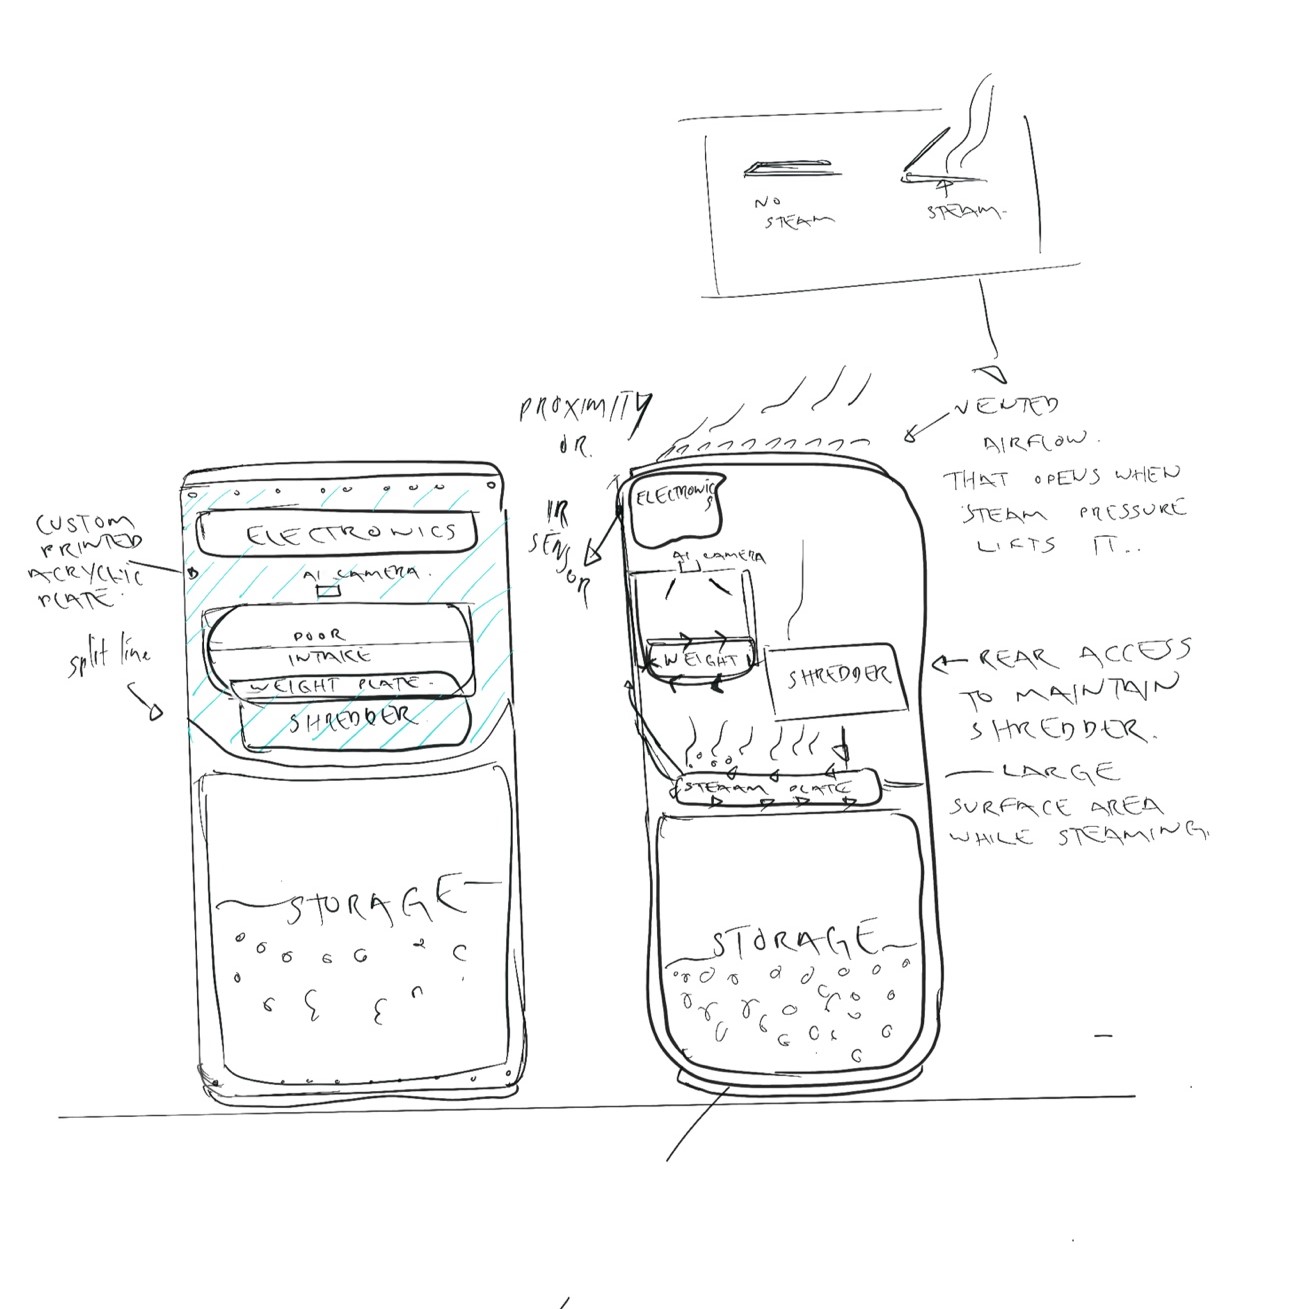 NO
STEAM
STEAM.
PROXIMITY
OR.
IR
SENSOR
VENTED
AIRFLOW.
THAT OPENS WHEN
STEAM PRESSURE
LIFTS IT..
CUSTOM
PRINTED
ACRYCLIC
PLATE.
split line
ELECTRONICS
AI CAMERA.
DOOR
INTAKE
WEIGHT PLATE.
SHREDDER
STORAGE
ELECTRONICS
AI CAMERA
WEIGHT
SHREDDER
STEAAM PLATE
STORAGE
REAR ACCESS
TO MAINTAIN
SHREDDER.
— LARGE
SURFACE AREA
WHILE STEAMING.